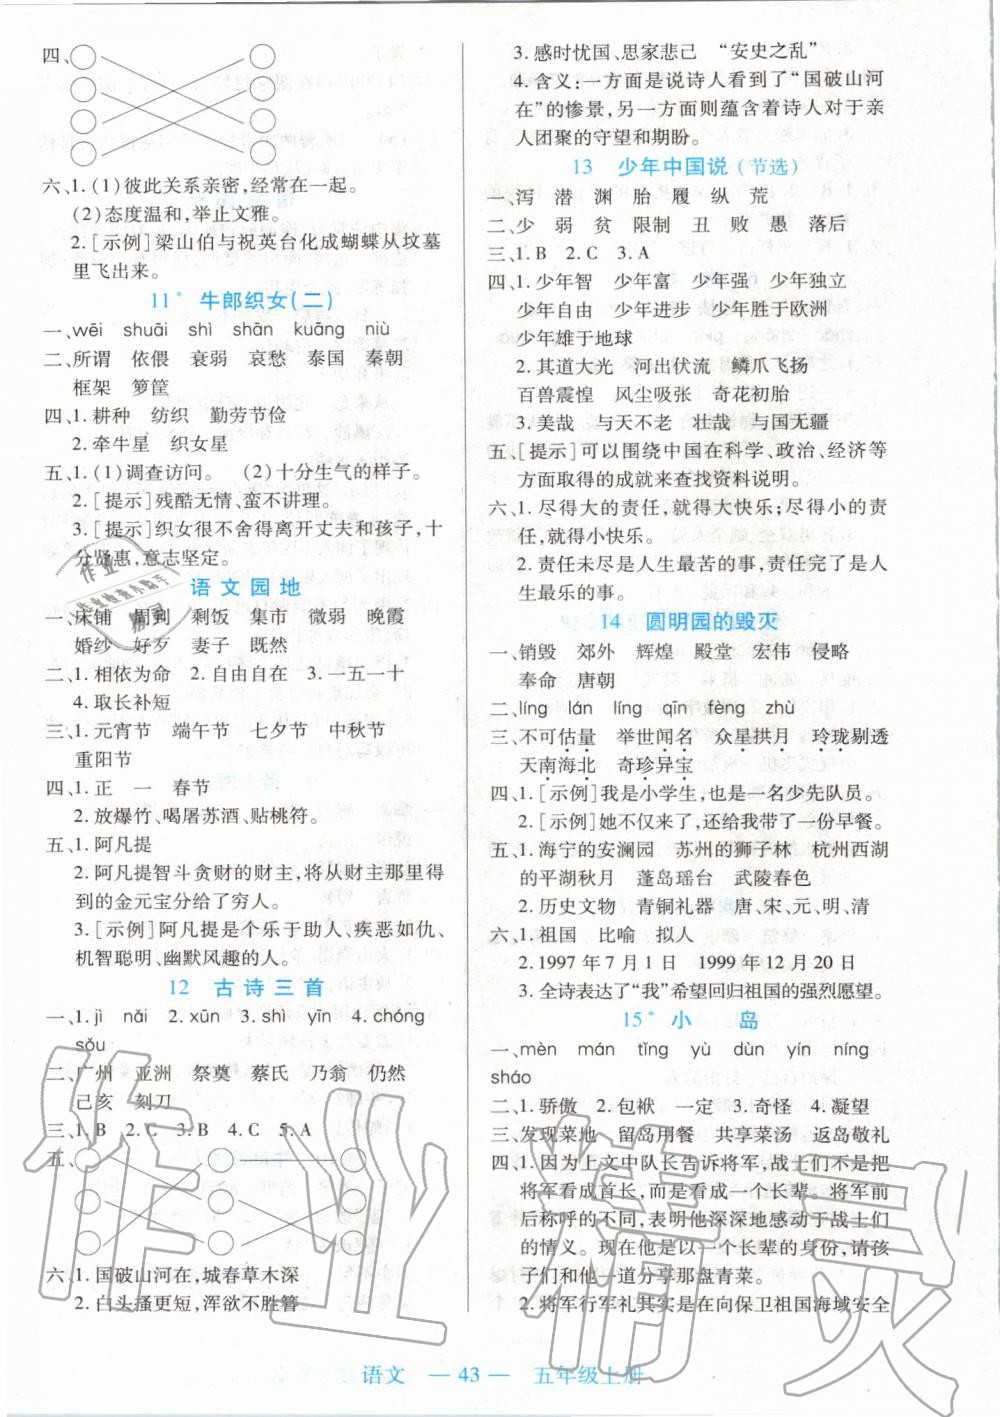 四、
六、1.(1)彼此关系亲密,经常在一起。
(2)态度温和,举止文雅。
2.[示例]梁山伯与祝英台化成蝴蝶从坟墓
里飞出来。
11* 牛郎织女(二)
一、wēi shuāi shì shān kuāng niù
二、所谓 依偎 衰弱 哀愁 泰国 秦朝
框架 箩筐
四、1.耕种 纺织 勤劳节俭
2.牵牛星 织女星
五、1.(1)调查访问。 (2)十分生气的样子。
2.[提示]残酷无情、蛮不讲理。
3.[提示]织女很不舍得离开丈夫和孩子,十
分贤惠,意志坚定。
语文园地
一、床铺 周到 剩饭 集市 微弱 晚霞
婚纱 好歹 妻子 既然
二、1.相依为命 2.自由自在 3.一五一十
4.取长补短
三、1.元宵节 端午节 七夕节 中秋节
重阳节
四、1.正 一 春节
2.放爆竹、喝屠苏酒、贴桃符。
五、1.阿凡提
2.阿凡提智斗贪财的财主,将从财主那里得
到的金元宝分给了穷人。
3.[示例]阿凡提是个乐于助人、疾恶如仇、
机智聪明、幽默风趣的人。
12 古诗三首
一、1.jì nǎi 2.xūn 3.shì yīn 4.chóng
sǒu
二、广州 亚洲 祭奠 蔡氏 乃翁 仍然
己亥 刻刀
三、1.B 2.C 3.A 4.C 5.A
五、
六、1.国破山河在,城春草木深
2.白头搔更短,浑欲不胜簪
3.感时忧国、思家悲己 “安史之乱”
4.含义:一方面是说诗人看到了“国破山河
在”的惨景,另一方面则蕴含着诗人对于亲
人团聚的守望和期盼。
13 少年中国说(节选)
一、泻 潜 渊 胎 履 纵 荒
二、少 弱 贫 限制 丑 败 愚 落后
三、1.B 2.C 3.A
四、1.少年智 少年富 少年强 少年独立
少年自由 少年进步 少年胜于欧洲
少年雄于地球
2.其道大光 河出伏流 鳞爪飞扬
百兽震惶 风尘吸张 奇花初胎
3.美哉 与天不老 壮哉 与国无疆
五、[提示]可以围绕中国在科学、政治、经济等
方面取得的成就来查找资料说明。
六、1.尽得大的责任,就得大快乐;尽得小的责
任,就得小快乐。
2.责任未尽是人生最苦的事,责任完了是人
生最乐的事。
14 圆明园的毁灭
一、销毁 郊外 辉煌 殿堂 宏伟 侵略
奉命 唐朝
二、líng lán líng qīn fèng zhù
三、不可估量 举世闻名 众星拱月 玲珑剔透
天南海北 奇珍异宝
四、1.[示例]我是小学生,也是一名少先队员。
2.[示例]她不仅来了,还给我带了一份早餐。
五、1.海宁的安澜园 苏州的狮子林 杭州西湖
的平湖秋月 蓬岛瑶台 武陵春色
2.历史文物 青铜礼器 唐、宋、元、明、清
六、1.祖国 比喻 拟人
2.1997年7月1日 1999年12月20日
3.全诗表达了“我”希望回归祖国的强烈愿望。
15* 小岛
一、mèn mán tǐng yù dùn yín níng
sháo
二、1.骄傲 2.包袱 一定 3.奇怪 4.凝望
三、发现菜地 留岛用餐 共享菜汤 返岛敬礼
四、1.因为上文中队长告诉将军,战士们不是把
将军看成首长,而是看成一个长辈。将军前
后称呼的不同,表明他深深地感动于战士们
的情义。所以他以一个长辈的身份,请孩
子们和他一道分享那盘青菜。
2.将军行军礼其实是在向保卫祖国海域安全
语文 — 43 — 五年级上册
作业精灵